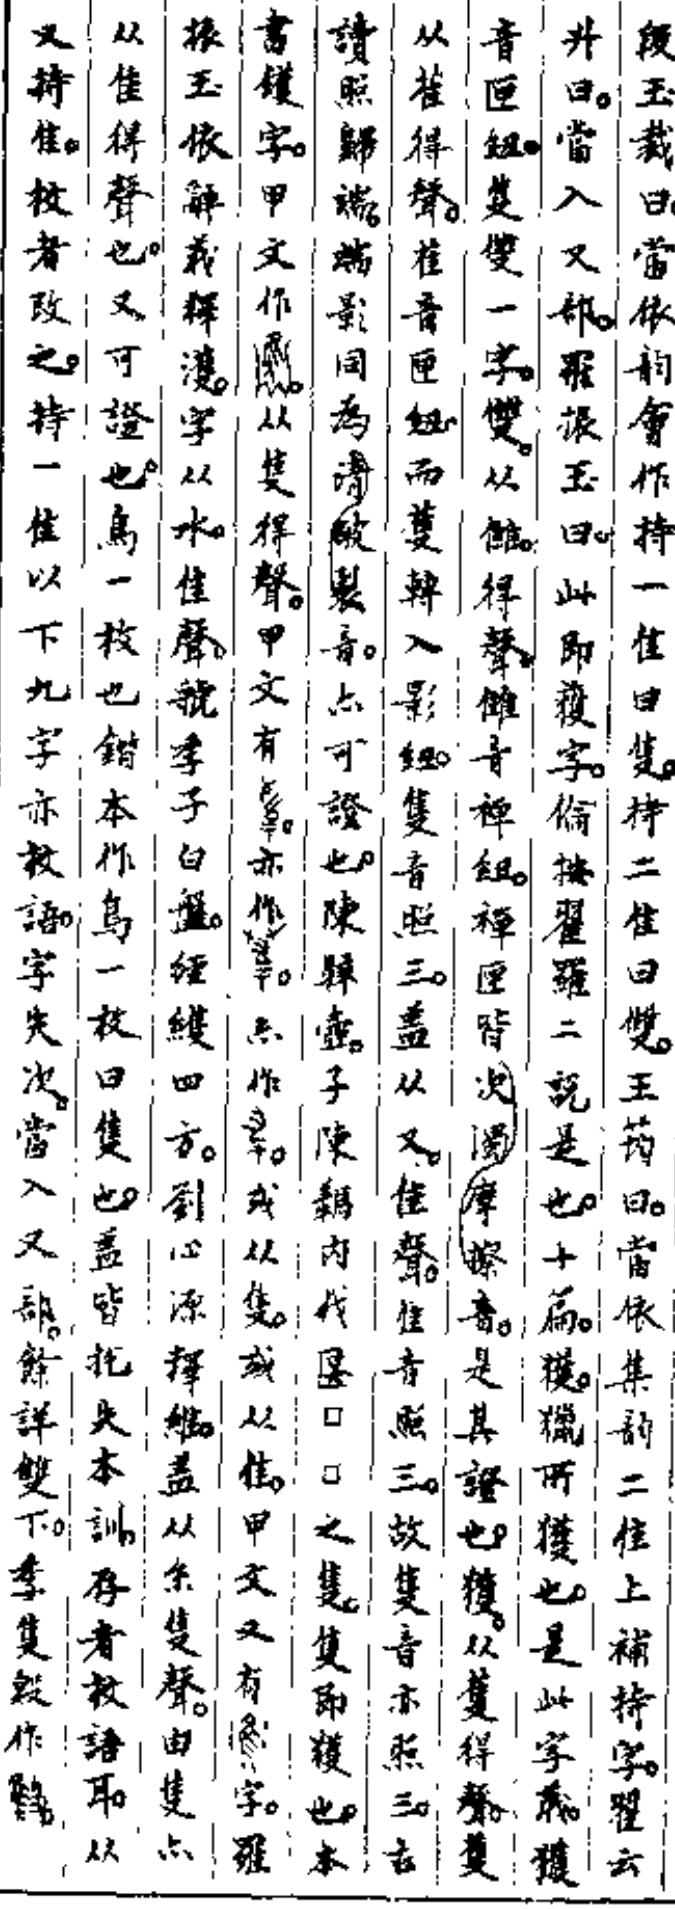 段玉裁曰。當依韵會作持一隹曰隻。持二隹曰雙。王筠曰。當依集韵二隹上補持字。翟云
升曰。當入又部。羅振玉曰。此即獲字。倫按翟羅二說是也。十篇。獲。獵所獲也。是此字義。獲
音匣紐。蒦雙一字。雙。从雔。得聲。雔音禪紐。禪匣皆次濁摩擦音。是其證也。獲。从蒦得聲。蒦
从萑得聲。萑音匣紐。而蒦轉入影紐。隻音照三。蓋从又。隹聲。隹音照三。故隻音亦照三。古
讀照歸端。端影同為清破裂音。亦可證也。陳騂壺。子陳騂内伐匽□□之隻。隻即獲也。本
書鑊字。甲文作。从隻得聲。甲文有。亦作。亦作。或从隻。或从隹。甲文又有字。羅
振玉依辭義釋濩。字从水。隹聲。虢季子白盤。經䪝四方。劉心源釋維。蓋从糸隻聲。由隻亦
从隹得聲也。又可證也。鳥一枚也鍇本作鳥一枚曰隻也。蓋皆挩失本訓。存者校語耳。从
又持隹。校者改之。持一隹以下九字亦校語。字失次。當入又部。餘詳雙下。季隻𣪘作